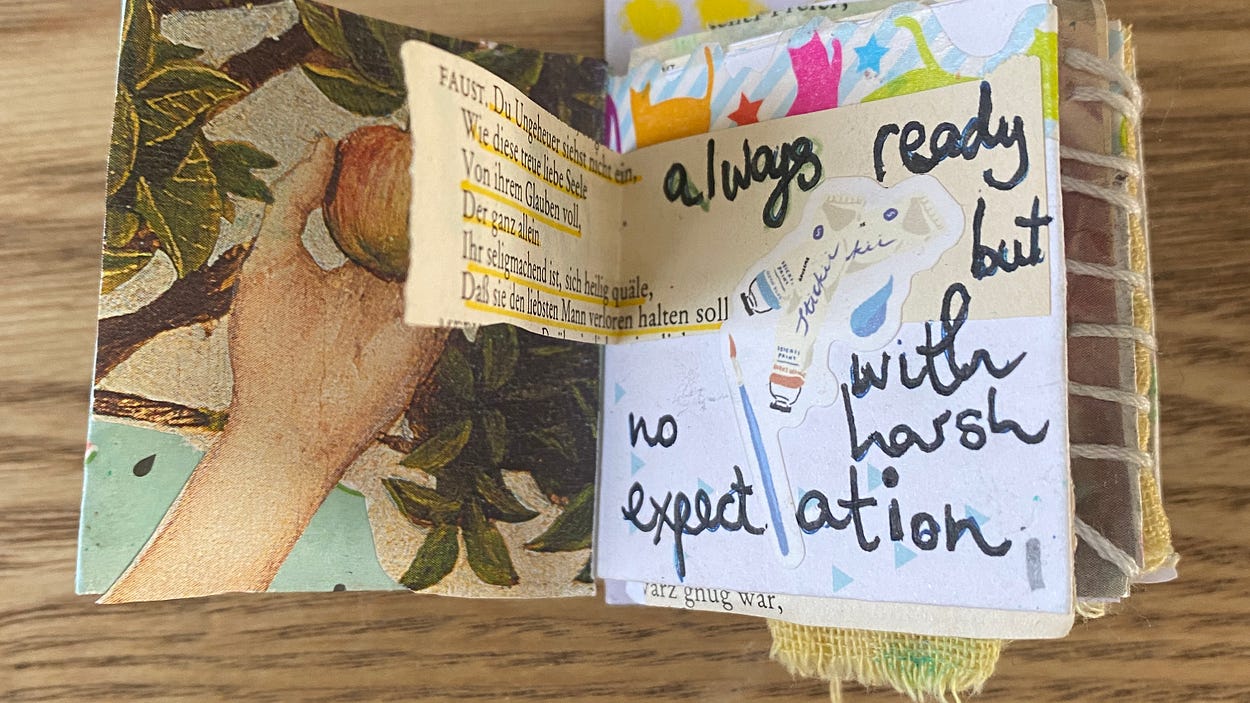 FAUST. Du Ungeheuer siehst nicht ein,
Wie diese treue liebe Seele
Von ihrem Glauben voll,
Der ganz allein
Ihr seligmachend ist, sich heilig quäle,
Daß sie den liebsten Mann verloren halten soll
always ready
but
with
no harsh
expectation
gnug war,